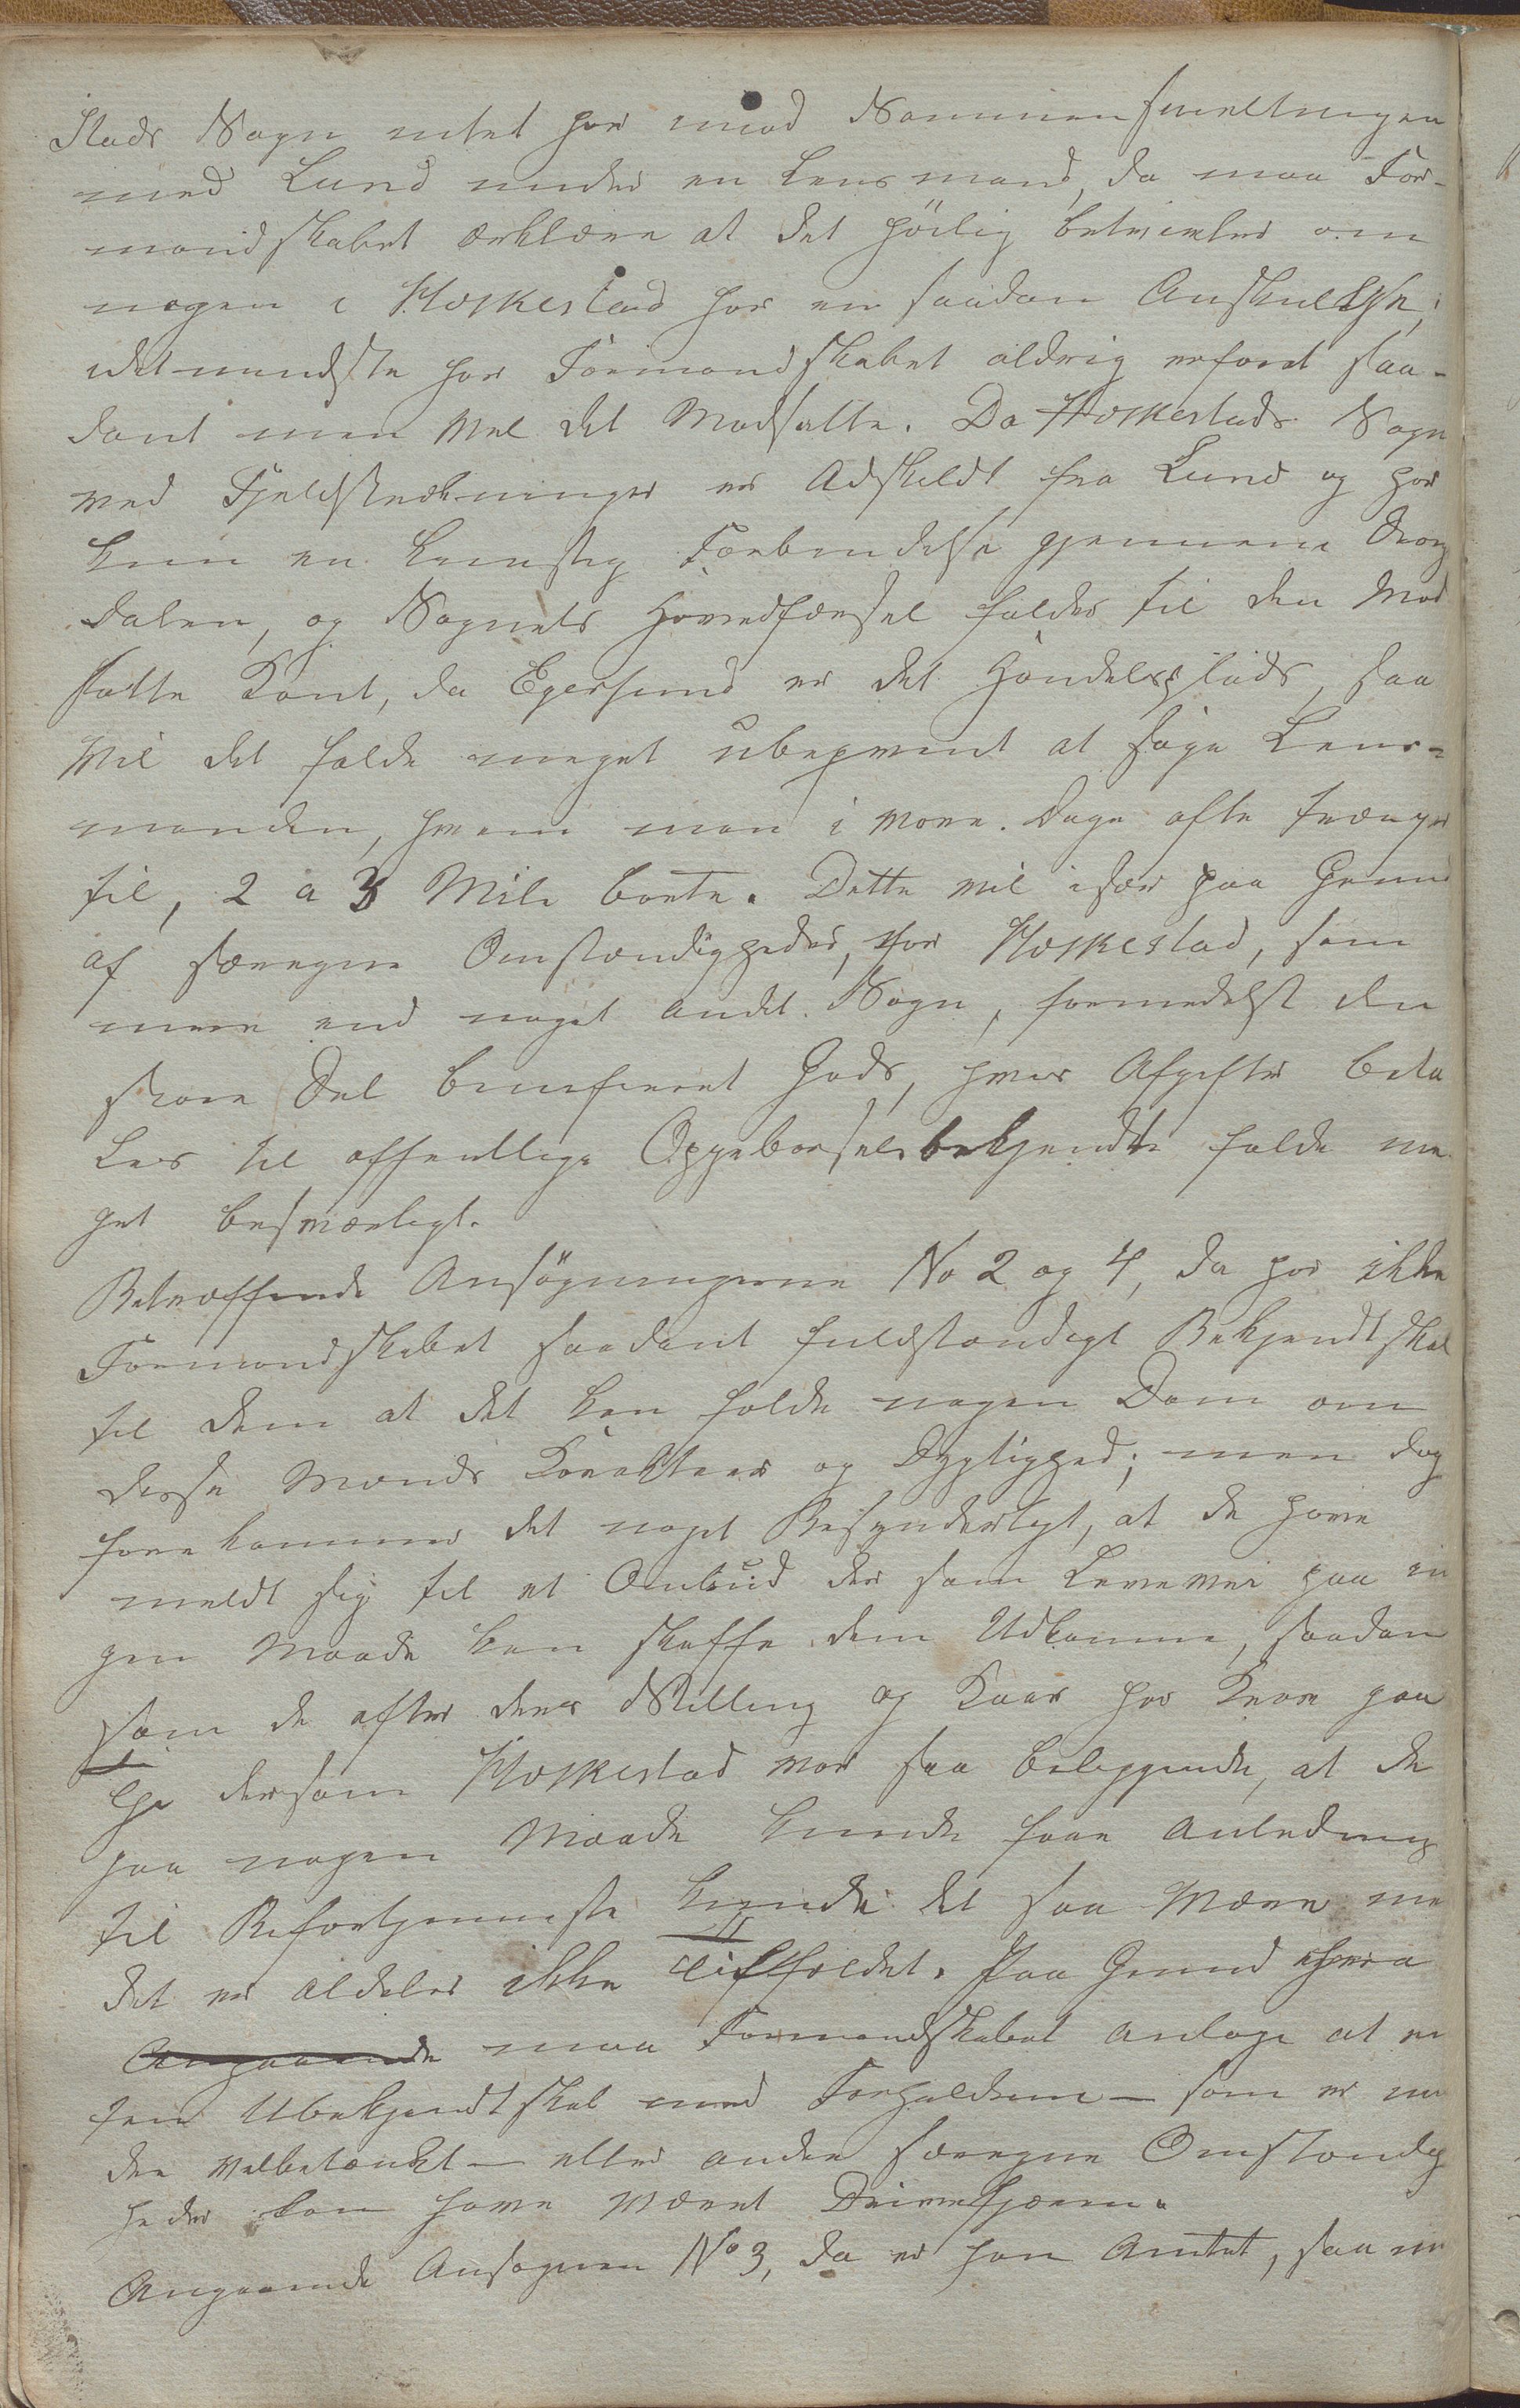 Stads Sogn intet har mod Sammensmeltningen
med Lund under en Lensmand, da maa For-
mandskabet erklære at det höilig betvivler om
nogen i Heskestad har en saadan Anskuelse,
idetmindste har Formandskabet aldrig erfaret saa-
dant men vel det Modsatte. Da Heskestads Sogn
ved Fjeldstrækninger er Adskildt fra Lund og har
kun en kunstig Forbindelse gjennem Drag
dalen, og Sognets Hovedfærsel falder til den Mod
satte Kant, da Egersund er det Handelsplads, saa
vil det falde meget ubeqvemt at søge Lens-
manden, hvem man i vore Dage ofte trænger
til, 2 a 3 Mile borte. Dette vil især paa Grund
af særegne Omstændigheder, for Heskestad, som
mere end noget andet Sogn, formedelst den
store Del beneficeret Gods, hvis Afgifter beta
les til offentlige Oppebørselsbetjendte falde me
get besværligt.
Betræffende Ansögningerne No 2 og 4, da har ikke
Formandskabet saadant fuldstændigt Bekjendtskab
til dem at det kan fælde nogen Dom om
disse Mænds Karakteer og Dygtighed; men dog
forekommer det noget Besynderligt, at de have
meldt sig til et Ombud der som Levevei paa in
gen Maade kan skaffe dem Udkomme, saadan
som de efter deres Stilling og Kaar har Krav paa
dersom Heskestad var saa beliggende, at de
paa nogen Maade kunde faae Anledning
til Bifortjenneste kunde det saa være me
det er aldeles ikke Tilfældet. Paa Grund hera
Angaaende maa Formandskabet antage at en
ten Ubekjendtskab med Forholdene - som er min
dre velbetænkt - eller andre særegne Omstændig
heder kan have været Drivefjæren.
Angaaende Ansøgeren No 3, da er han Amtet, saa